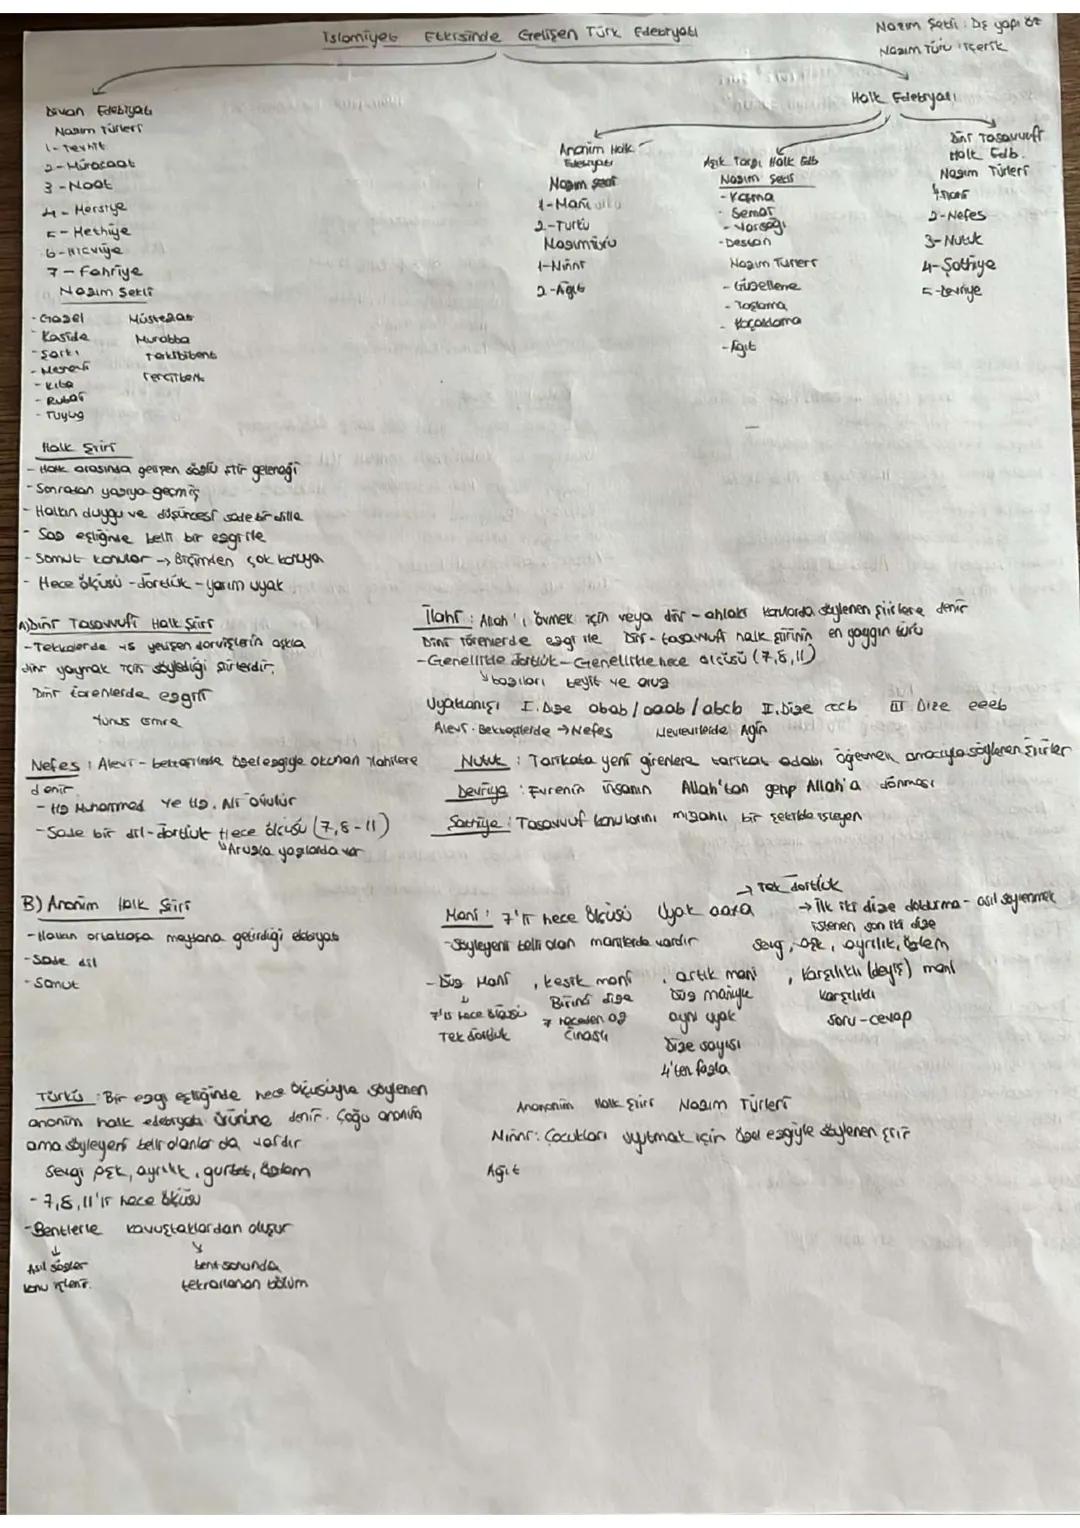 İslamiyet Etkisinde Gelişen Türk Edebiyatı
Nazım Şekli : Dış yapı öz
Nazım Türü : içerik
Divan Edebiyatı
Nazım Türleri
1-Tevhit
2-Münacaat
3-Naat
4-Mersiye
5-Methiye
6-Hicviye
7-Fahriye
Nazım Şekli
-Gazel Müstezat
-Kaside Murabba
-Şarkı Terkibibent
-Mesnevi Terciibent
-Kıta
-Rubai
-Tuyug
Halk Edebiyatı
Anonim Halk Edebiyatı
Nazım Şekli
1-Mani
2-Türkü
Nazım türü
1-Ninni
2-Ağıt
Aşık Tarzı Halk Edb
Nazım Şekli
-Koşma
-Semai
-Varsağı
-Destan
Nazım Türleri
-Güzelleme
-Taşlama
-Koçaklama
-Ağıt
Dini Tasavvufi
Halk Edb.
Nazım Türleri
1-İlahi
2-Nefes
3-Nutuk
4-Şathiye
5-Devriye
Halk Şiiri
-Halk arasında gelişen sözlü şiir geleneği
-Sonradan yazıya geçmiş
-Halkın duygu ve düşüncesi sade bir dille
-Saz eşliğinde belli bir ezgi ile
-Somut konular → Biçimden çok konuya
-Hece ölçüsü -dörtlük -yarım uyak
A)Dini Tasavvufi Halk Şiiri
-Tekkelerde ys yetişen dervişlerin aşkla
dini yaymak için söylediği şiirlerdir.
Dini törenlerde ezgili
Yunus emre
İlahi : Allah'ı övmek için veya dini -ahlaki konularda söylenen şiirlere denir
Dini törenlerde ezgi ile Dini-tasavvufi halk şiirinin en yaygın türü
-Genellikle dörtlük-Genellikle hece ölçüsü (7,8,11)
↳bazıları beyit ve aruz
Uyaklanışı I.Dize abab/aaab/abcb II.Dize cccb III Dize eeeb
Alevi-Bektaşilerde → Nefes Mevlevilerde Ayin
Nefes : Alevi-bektaşilerde özel ezgiyle okunan ilahilere
denir
-Hz Muhammed ve Hz. Ali övülür
-Sade bir dil-dörtlük Hece ölçüsü (7,8-11)
↳Aruzla yazılanlarda var
Nutuk : Tarikata yeni girenlere tarikat adabı öğretmek amacıyla söylenen şiirler
Devriye : Evrenin insanın Allah'tan gelip Allah'a dönmesi
Şathiye : Tasavvuf konularını mizahlı bir şekilde işleyen
B) Anonim Halk Şiiri
-Halkın ortaklaşa meydana getirdiği edebiyat
-Sade dil
-Somut
Mani : 7'li hece ölçüsü Uyak aaxa → Tek dörtlük
→ İlk iki dize doldurma-asıl söylenmek
istenen son iki dize
-Söyleyeni belli olan manilerde vardır
Sevgi, aşk, ayrılık, özlem
-Düz Mani , kesik mani , artık mani , Karşılıklı (deyiş) mani
7'li hece ölçüsü
Tek dörtlük
Birinci dize
7 heceden az
Cinaslı
Düz maniyle
aynı uyak
Dize sayısı
4'ten fazla
Karşılıklı
soru-cevap
Türkü : Bir ezgi eşliğinde hece ölçüsüyle söylenen
anonim halk edebiyatı ürününe denir. Çoğu anonim
ama söyleyeni belli olanlar da vardır
Sevgi aşk, ayrılık, gurbet, özlem
-7,8,11'li hece ölçüsü
-Bentlerle kavuştaklardan oluşur
Asıl sözler
konu işlenir.
bent sonunda
tekrarlanan bölüm
Anononim Halk Şiiri Nazım Türleri
Ninni: Çocukları uyutmak için özel ezgiyle söylenen şiir
Ağıt